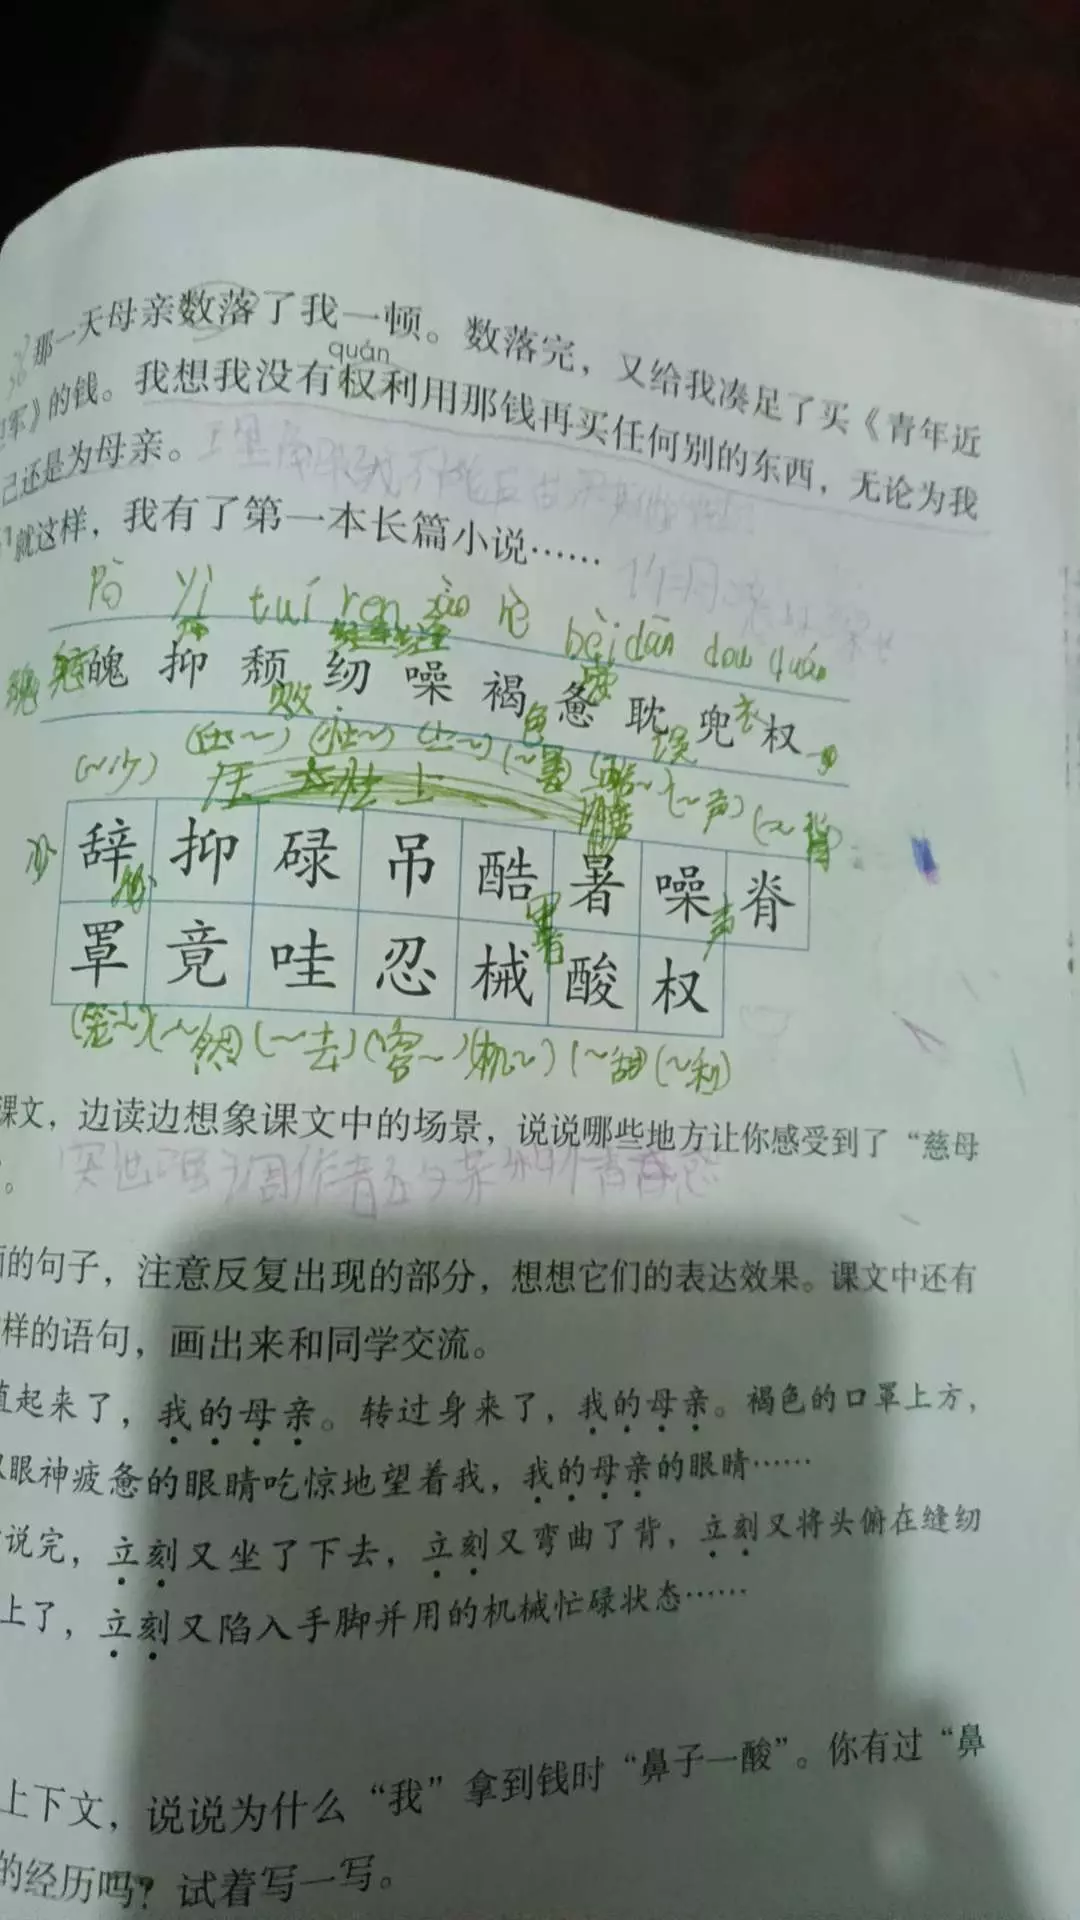 那一天母亲数落了我一顿。数落完，又给我凑足了买《青年近
quán
军》的钱。我想我没有权利用那钱再买任何别的东西，无论为我
己还是为母亲。
就这样，我有了第一本长篇小说……
yì tuí ren bèi dān dou quán
魄 抑 颓 纫 噪 褐 惫 耽 兜 权
败 色 疲 误 衣
(~少) (~声) (~背)
压 壮 上
辞 抑 碌 吊 酷 暑 噪 脊
罩 竟 哇 忍 械 酸 权
(笼~) (~然) (~去) (容~) (机~) (~甜) (~利)
课文，边读边想象课文中的场景，说说哪些地方让你感受到了“慈母
。
的句子，注意反复出现的部分，想想它们的表达效果。课文中还有
样的语句，画出来和同学交流。
直起来了，我的母亲。转过身来了，我的母亲。褐色的口罩上方，
眼神疲惫的眼睛吃惊地望着我，我的母亲的眼睛……
说完，立刻又坐了下去，立刻又弯曲了背，立刻又将头俯在缝纫
上了，立刻又陷入手脚并用的机械忙碌状态……
上下文，说说为什么“我”拿到钱时“鼻子一酸”。你有过“鼻
的经历吗？试着写一写。